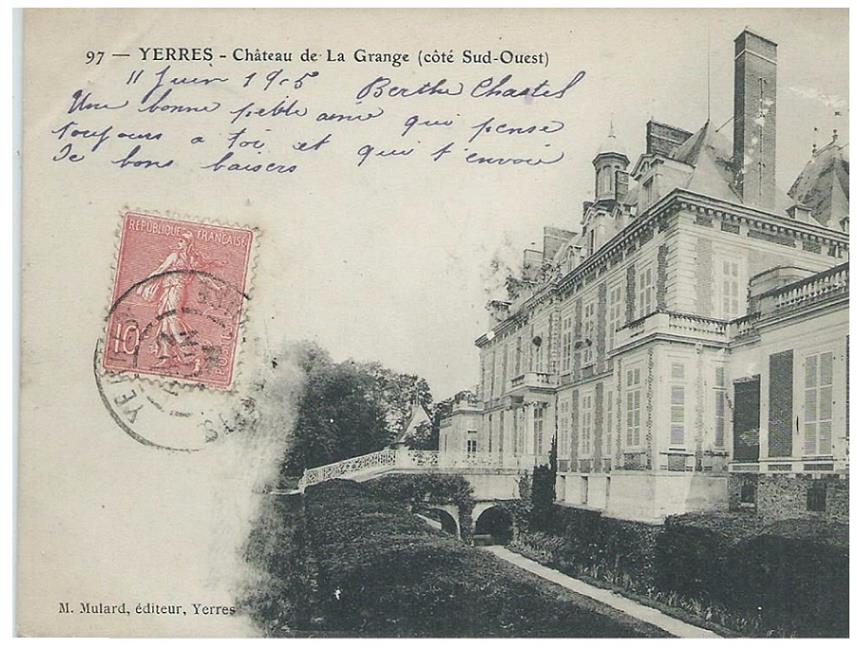 97 — YERRES - Château de La Grange (côté Sud-Ouest)
11 Juin 19-5 Berthe Chastel
Une bonne petite amie qui pense
toujours a toi et qui t'envoie
de bons baisers
REPUBLIQUE FRANÇAISE
10
POSTES
YERR
M. Mulard, éditeur, Yerres